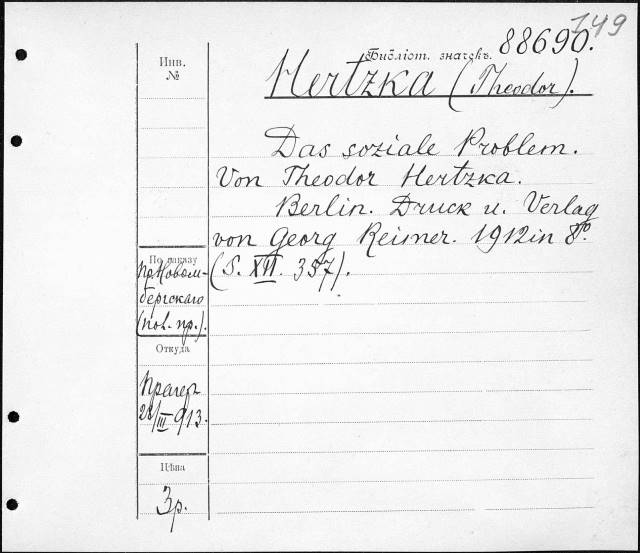 149
Инв. №
Библіот. значекъ. 88690.
Hertzka (Theodor).
Das soziale Problem.
Von Theodor Hertzka.
Berlin. Druck u. Verlag
von Georg Reimer. 1912 in 8º.
(S. XII. 357).
По заказу
Пр. Новом-
бергскаго
(пол.-пр.).
Откуда
Прагеръ
913.
Цѣна
3р.